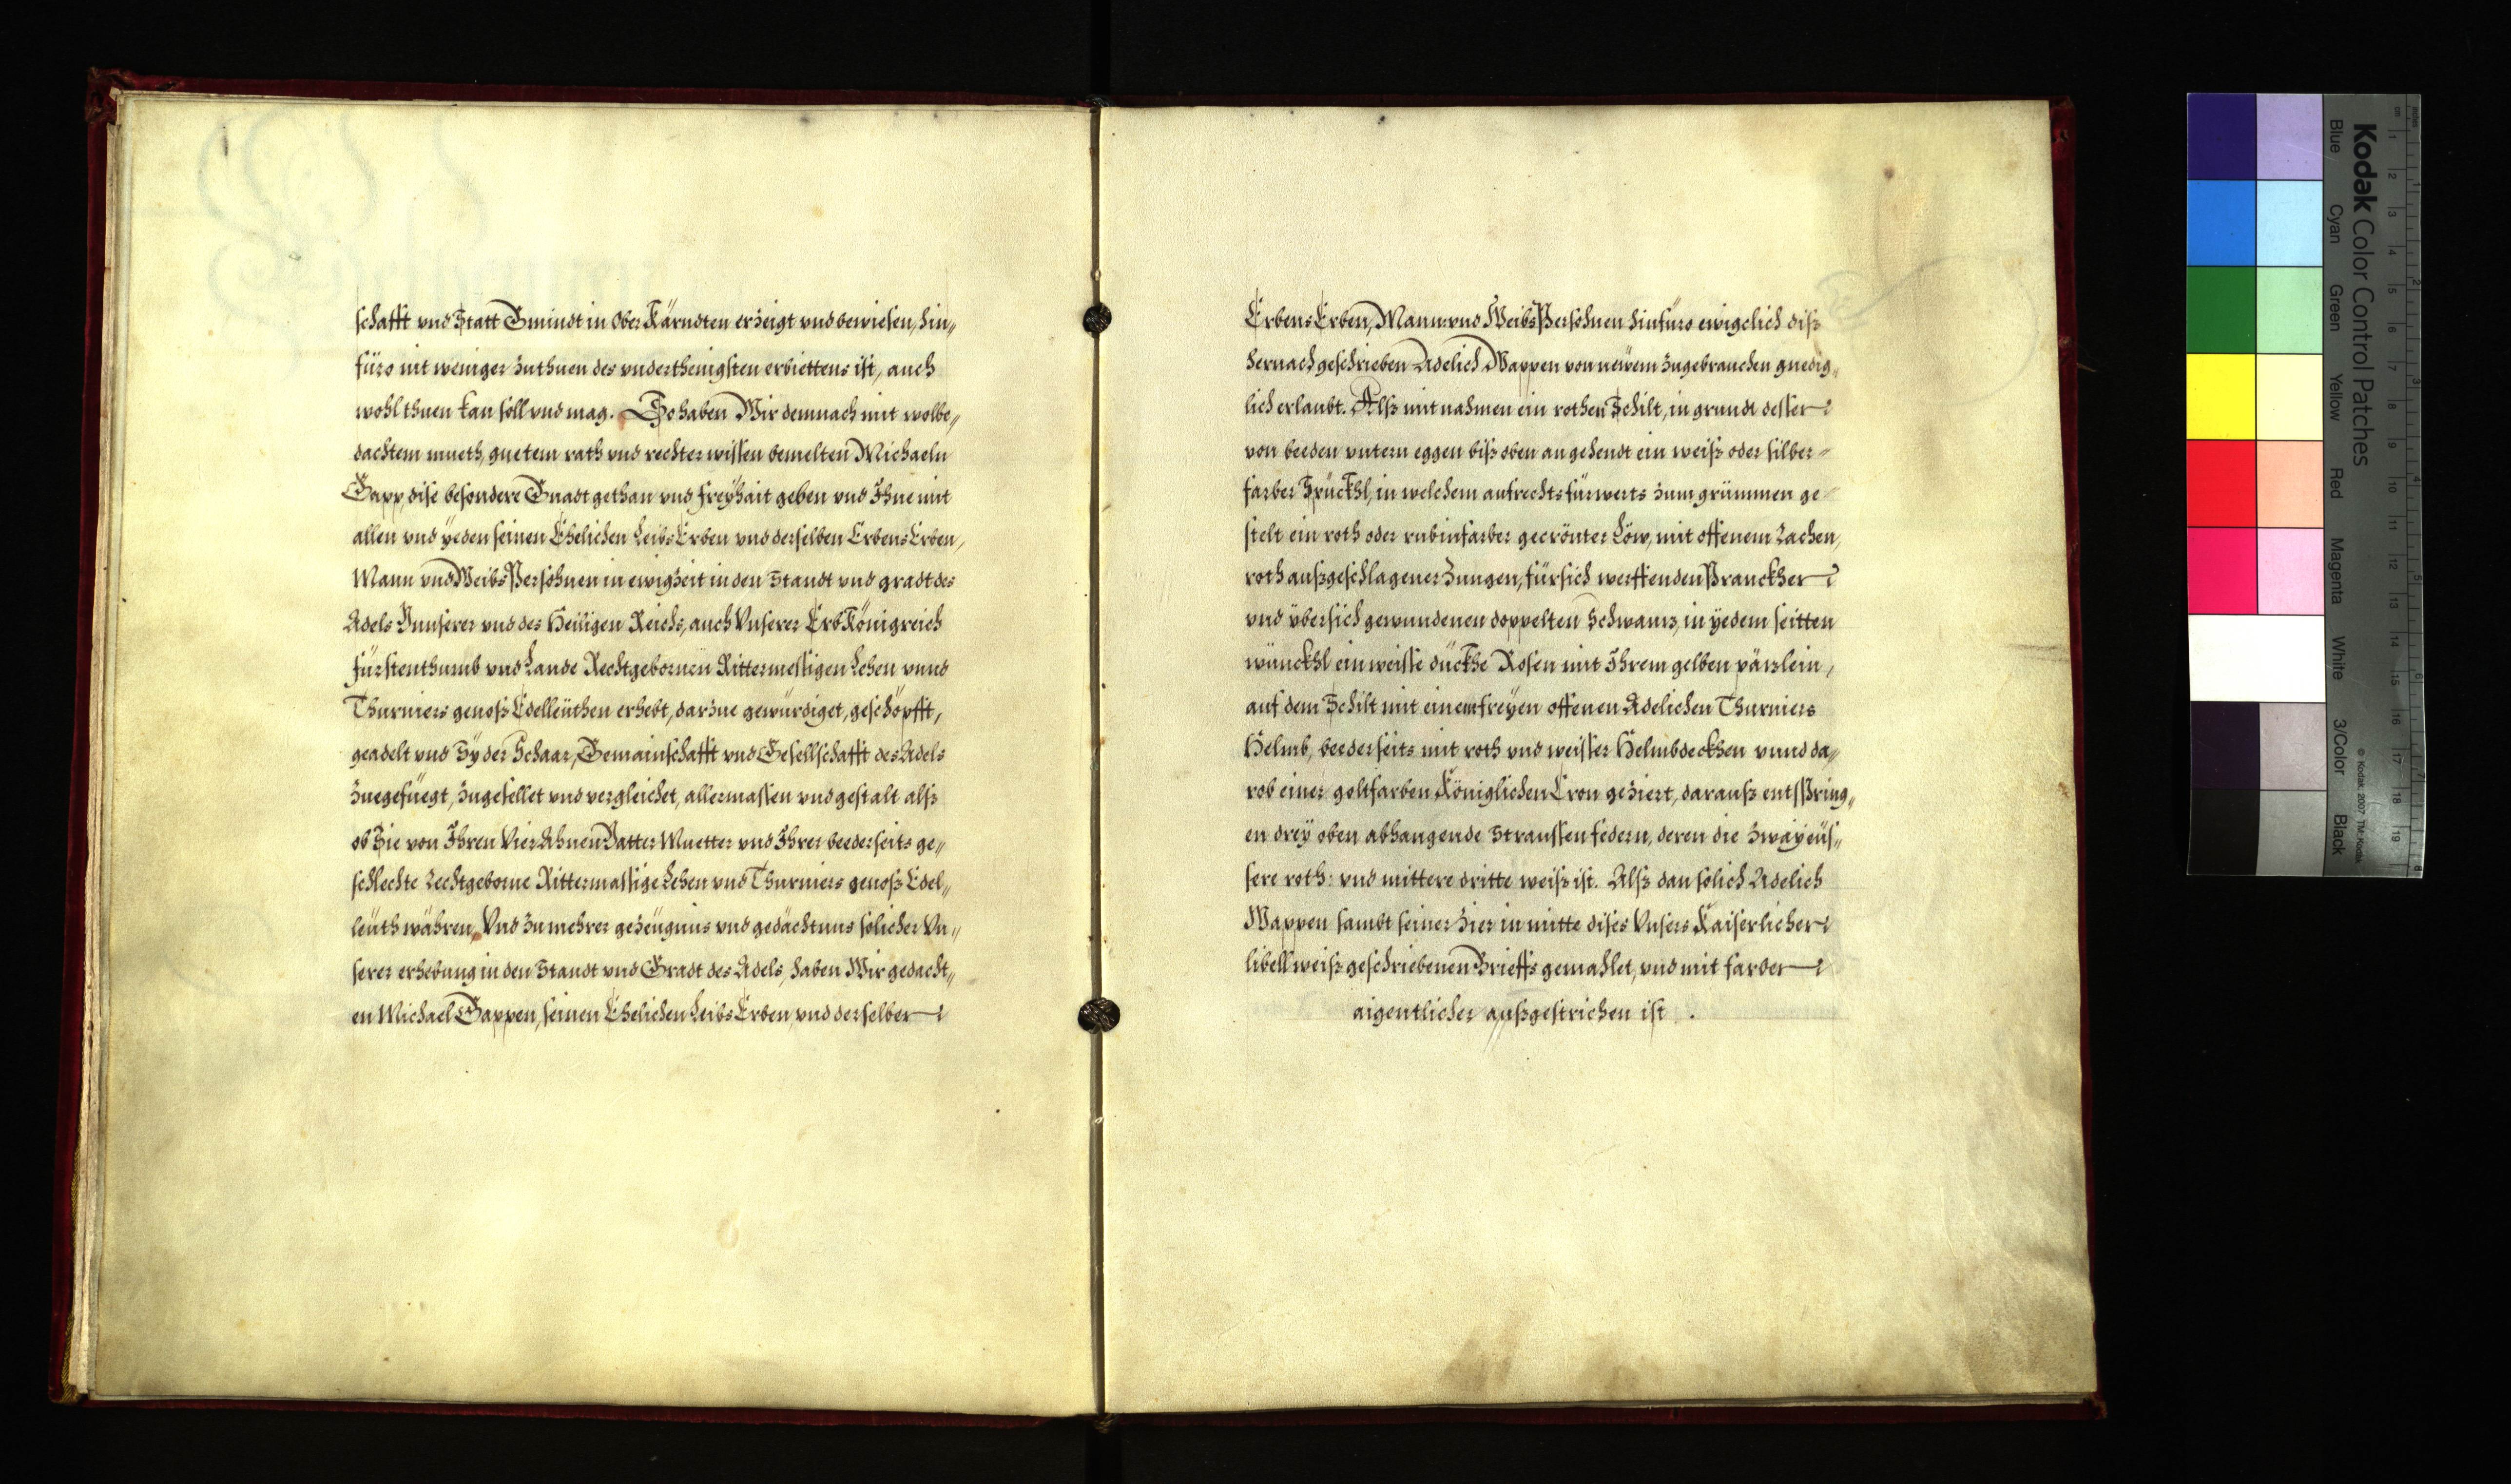 schafft vnd Statt Gmündt in Ober Kärndten erzeigt vnd bewiesen, hin„
füro nit weniger zuthuen des vnderthenigsten erbiettens ist, auch
wohl thuen kan soll vnd mag. So haben Wir demnach mit wolbe„
dachtem mueth, guetem rath vnd rechter wissen bemelten Michaeln
Gapp, dise besondere Gnadt gethan vnd freÿhait geben vnd Ihne mit
allen vnd yeden seinen Ehelichen Leibs Erben vnd derselben Erbens Erben,
Mann vnd Weibs Persohnen in ewigheit in den Standt vnd gradt des
Adels Vnnserer vnd des Heiligen Reichs, auch Vnserer Erb Königreich
fürstenthumb vnd Lande Rechtgebornen Rittermessigen Lehen vnnd
Thurniers genoß Edelleüthen erhebt, darzue gewürdiget, geschöpfft,
geadelt vnd Sÿ der Schaar, Gemainschafft vnd Gesellschafft des Adels
zuegefüegt, zugesellet vnd vergleichet, allermassen vnd gestalt alß
ob Sie von Ihren Vier Ahnen Vatter Muetter vnd Ihrer beederseits ge„
schlechte Rechtgeborne Rittermassige Lehen vnd Thurniers genoß Edel„
leüth währen, Vnd zu mehrer gezeügnus vnd gedächtnus solicher Vn„
serer erhebung in den Standt vnd Gradt des Adels, haben Wir gedacht„
en Michael Gappen, seinen Ehelichen Leibs Erben, vnd derselben
Erbens Erben, Mann: vnd Weibs Persohnen hinfüro ewigelich diß
hernach geschrieben Adelich Wappen von newem zugebrauchen gnedig„
lich erlaubt. Alß mit nahmen ein rothen Schilt, in grundt dessen
von beeden vntern eggen biß oben angehendt ein weiß oder silber„
farber Spückhl, in welchem aufrechts fürwerts zum grümmen ge„
stelt ein roth oder rubinfarber gecrönter Löw, mit offenem Rachen,
roth außgeschlagener Zungen, für sich werffenden Pranckhen
vnd vbersich gewundenen doppelten Schwanz, in yedem seitten
wünckhl ein weisse dückhe Rosen mit Ihrem gelben pärzlein,
auf dem Schilt mit einem freÿen offenen Adelichen Thurniers
Helmb, beederseits mit roth vnd weisser Helmbdeckhen vnnd da„
rob einer goltfarben Königlichen Cron geziert, darauß entspring„
en dreÿ oben abhangende Straussen federn, deren die zwaÿ eüs„
sere roth: vnd mittere dritte weiß ist. Alß dan solich Adelich
Wappen sambt seiner zier in mitte dises Vnsers Kaiserlichen
libell weiß geschriebenen Brieffs gemahlet, vnd mit farben
aigentlicher außgestrichen ist .
Kodak Color Control Patches
Blue Cyan Green Yellow Red Magenta White 3/Color Black
© Kodak, 2007 TM: Kodak